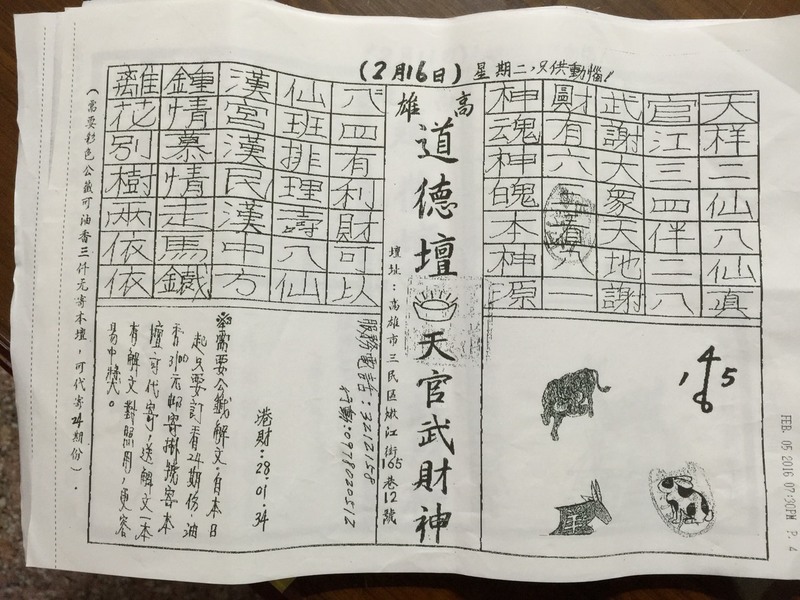 (2月16日) 星期二,只供動惱
天样二仙八仙真
官江三四伴二八
武謝大象天地謝
財有六 有八一
神魂神魄本神源
1 4 5 6
羊
高雄
道德壇 天官武財神
壇址:高雄市三民區嫩江街165巷12號
服務電話:3212158
行動:0978020512
八四有利財可以
仙班排理壽八仙
漢宮漢民漢中方
鍾情慕情走馬鐵
離花別樹兩依依
港財:28.01.34
※需要公籤解文,有本日
起只要訂看24期份,油
香3100元即寄掛號寄本
壇可代寄,送解文一本
有解文對照用,更容
易中獎。
(需要彩色公籤可油香三仟元寄本壇,可代寄24期份)。
FEB. 05 2016 07:30PM P. 4